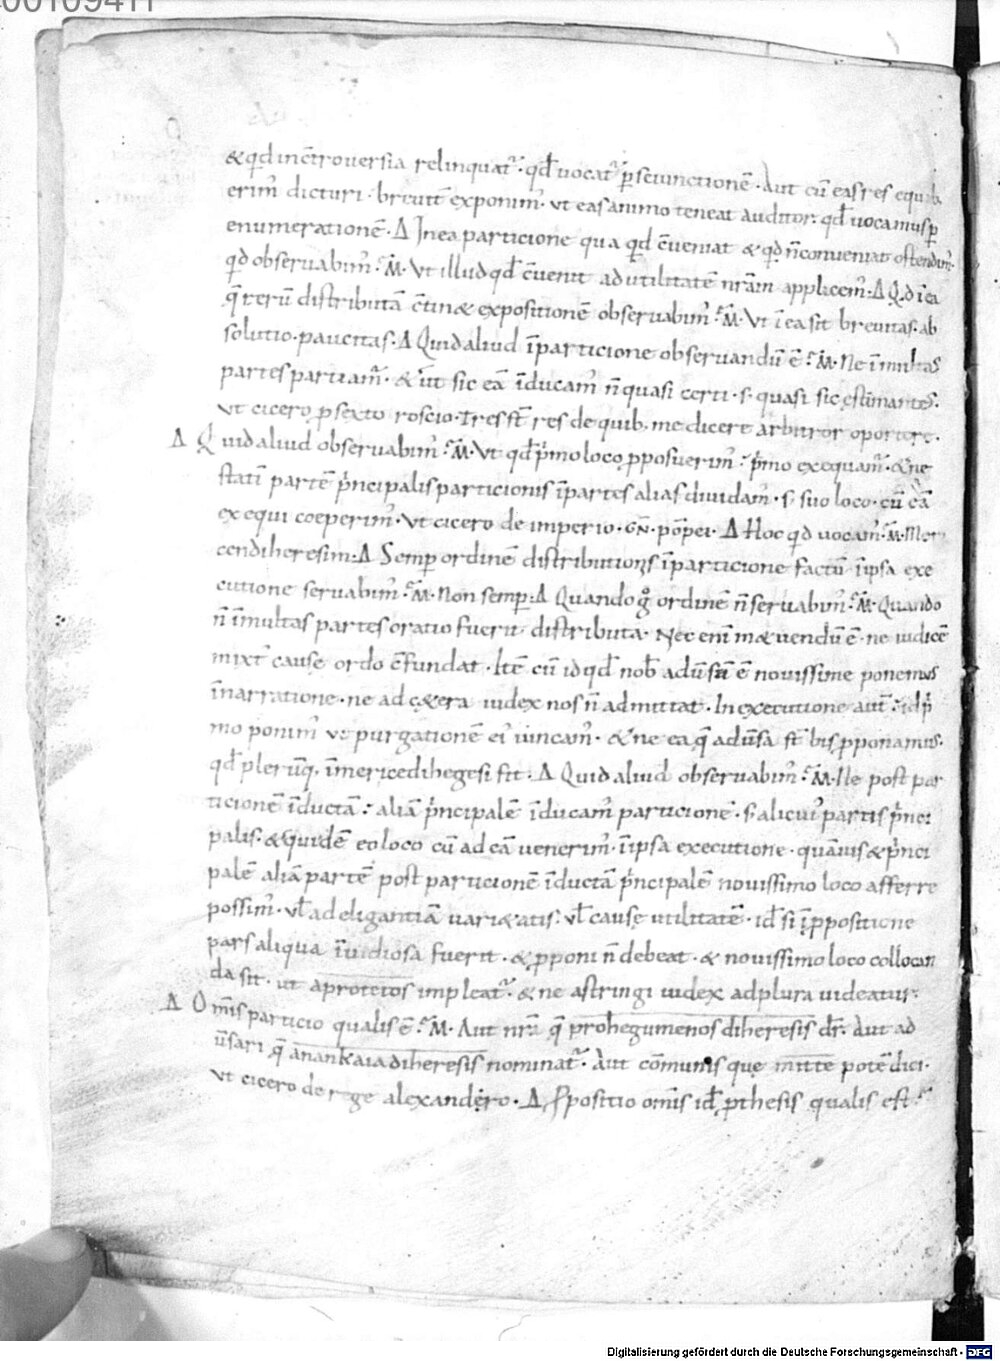 00109411
& qd in ct̄rouersia relinquat̄· qd̄ uocat̄ p̱ seiunctionē· Aut cū eas res equib;
erim̄ dicturi· breuit̄ exponim̄· ut eas animo teneat auditor· qd̄ uocamus p̱
enumerationē· Δ In ea particione qua qd cūeniat & qd n̄ conueniat ostendim̄·
qd obseruabim̄· M̄· Vt illud qd̄ cūenit ad utilitatē nr̄am applicem̄· Δ Qd ī ea
q̄ rerū distributā c̄tin& expositionē obseruabim̄· M̄· Vt ī ea sit breuitas· ab
solutio· paucitas· Δ Quid aliud īparticione obseruandū ē· M̄· Ne ī multas
partes partiam̄· & ut sic eā īducam̄ n̄ quasi certi· s· quasi sic ęstimantes·
Vt cicero p̱ sexto roscio· Tres st̄ res de quib; me dicere arbitror oportere·
Δ Quid aliud obseruabim̄· M̄· Vt qd̄ p̄mo loco p̱posuerim̄· p̄mo exequam̄· & ne
statī partē p̄ncipalis particionis īpartes alias diuidam̄· s· suo loco· cū eā
exequi coeperim̄· Vt cicero de imperio· GN̄· pōpei· Δ Hoc qd uocam̄· M̄· Mer
cendiheresim· Δ Semp̱ ordinē distributionis īparticione factū īipsa exe
cutione seruabim̄· M̄· Non semp̱· Δ Quando g̊ ordinē n̄ seruabim̄· M̄· Quando
n̄ īmultas partes oratio fuerit distributa· Nec enī m&uendū ē· ne iudicē
mixt̄ cause ordo c̄fundat· Itē cū id qd̄ nob̄ aduersū ē nouissime ponemus
īnarratione· ne ad c&era iudex nos n̄ admittat· In executione aut̄· id p̄
mo ponim̄ ut purgationē ei iuncam̄· & ne ea q̄ aduersa st̄ bis p̱ponamus·
qd̄ plerūq; īmericedihegesi fit· Δ Quid aliud obseruabim̄· M̄· Ne post par
ticionē īductā· aliā p̄ncipalē īducam̄ particionē· s· alicui partis p̄nci
palis· & quidē eo loco cū ad eā uenerim̄· īipsa executione· quāuis & p̄nci
palē aliā partē post particionē īductā p̄ncipalē nouissimo loco afferre
possim̄· ut̄ ad eligantiā uari&atis· ut̄ cause utilitatē· id̄ si īp̱positione
pars aliqua īuidiosa fuerit· & p̱poni n̄ debeat· & nouissimo loco collocan
da sit· ut aproteros impleat̄· & ne astringi iudex ad plura uideatur·
Δ Om̄is particio qualis ē· M̄· Aut nr̄a q̄ prohegumenos diheresis dr̄· Aut ad
ūsarii q̄ anankaia diheresis nominat̄· Aut cōmunis que mitte potē dici·
ut cicero de rege alexandero· Δ P̱positio om̄is id̄ p̱thesis qualis est·
Digitalisierung gefördert durch die Deutsche Forschungsgemeinschaft - DFG